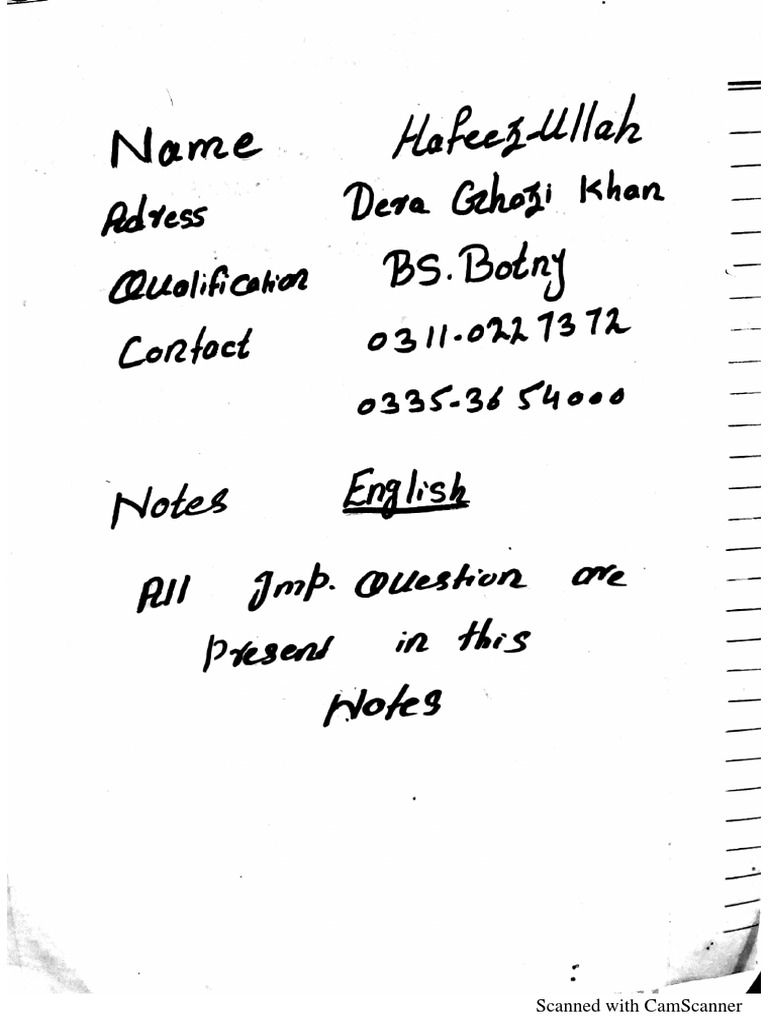 Name Hafeez-Ullah
Adress Dera Ghazi Khan
Qualification BS. Botny
Contact 0311-0227372
0335-3654000
Notes English
All Imp. Question are
Present in this
Notes
Scanned with CamScanner